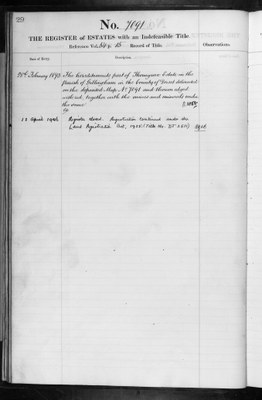 29
No. 7691
THE REGISTER of ESTATES with an Indefeasible Title
Reference Vol. p. 15 Record of Title.
Observations
Date of Entry
Description
28th February 1895 The hereditaments part of Thornyson Estate in the
Parish of Gillingham in the County of Kent delineated
on the deposited Map No 7691 and thereon edged
with red, together with the mines and minerals under
the same
11 April 1946 Register closed. Registration continued under the
Land Registration Act, 1925 (Title No.